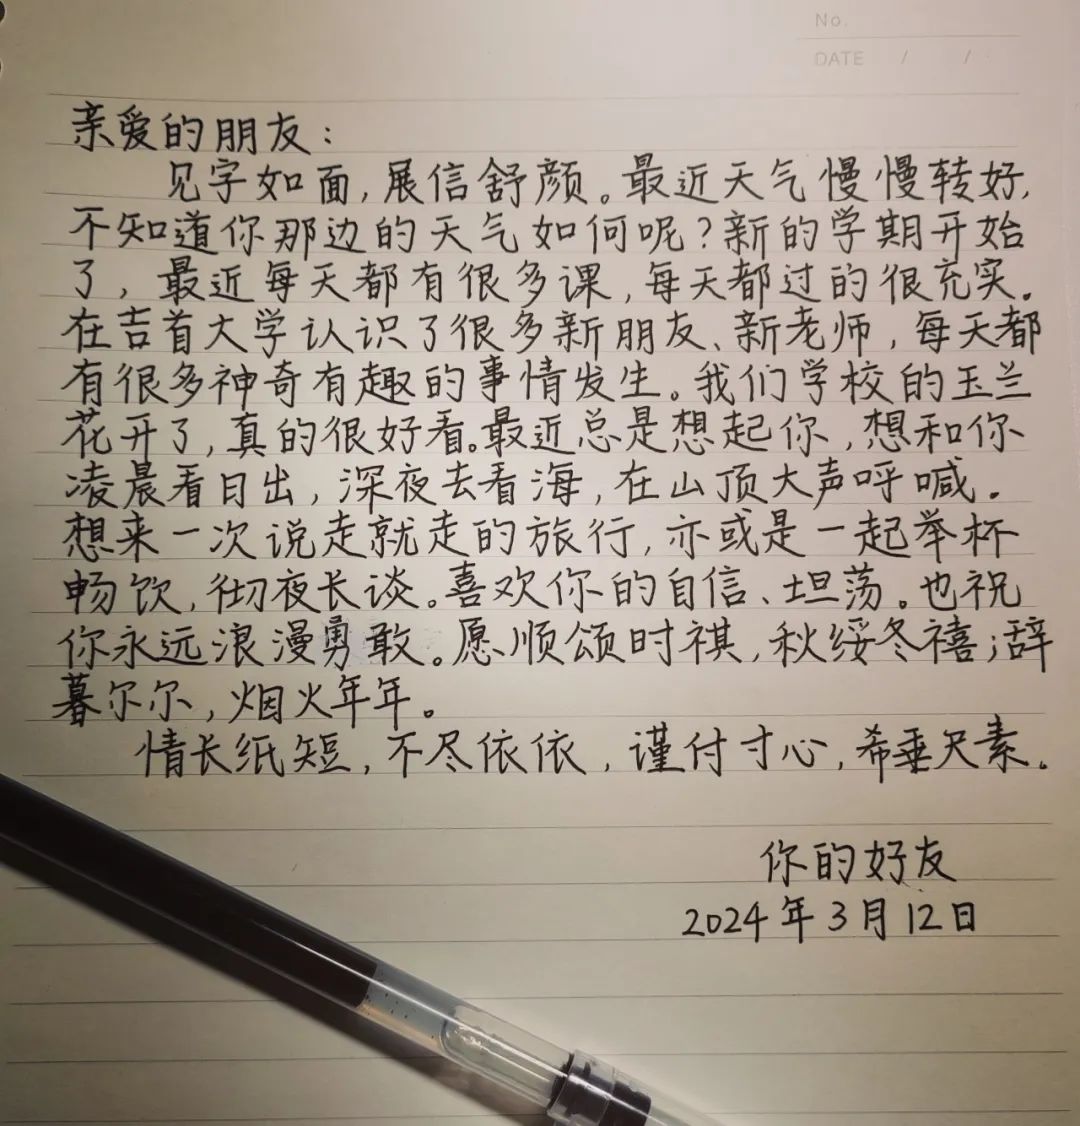 No.
DATE / /
亲爱的朋友：
见字如面，展信舒颜。最近天气慢慢转好，
不知道你那边的天气如何呢？新的学期开始
了，最近每天都有很多课，每天都过的很充实。
在吉首大学认识了很多新朋友、新老师，每天都
有很多神奇有趣的事情发生。我们学校的玉兰
花开了，真的很好看。最近总是想起你，想和你
凌晨看日出，深夜去看海，在山顶大声呼喊。
想来一次说走就走的旅行，亦或是一起举杯
畅饮，彻夜长谈。喜欢你的自信、坦荡。也祝
你永远浪漫勇敢。愿顺颂时祺，秋绥冬禧；辞
暮尔尔，烟火年年。
情长纸短，不尽依依，谨付寸心，希垂尺素。
你的好友
2024年3月12日